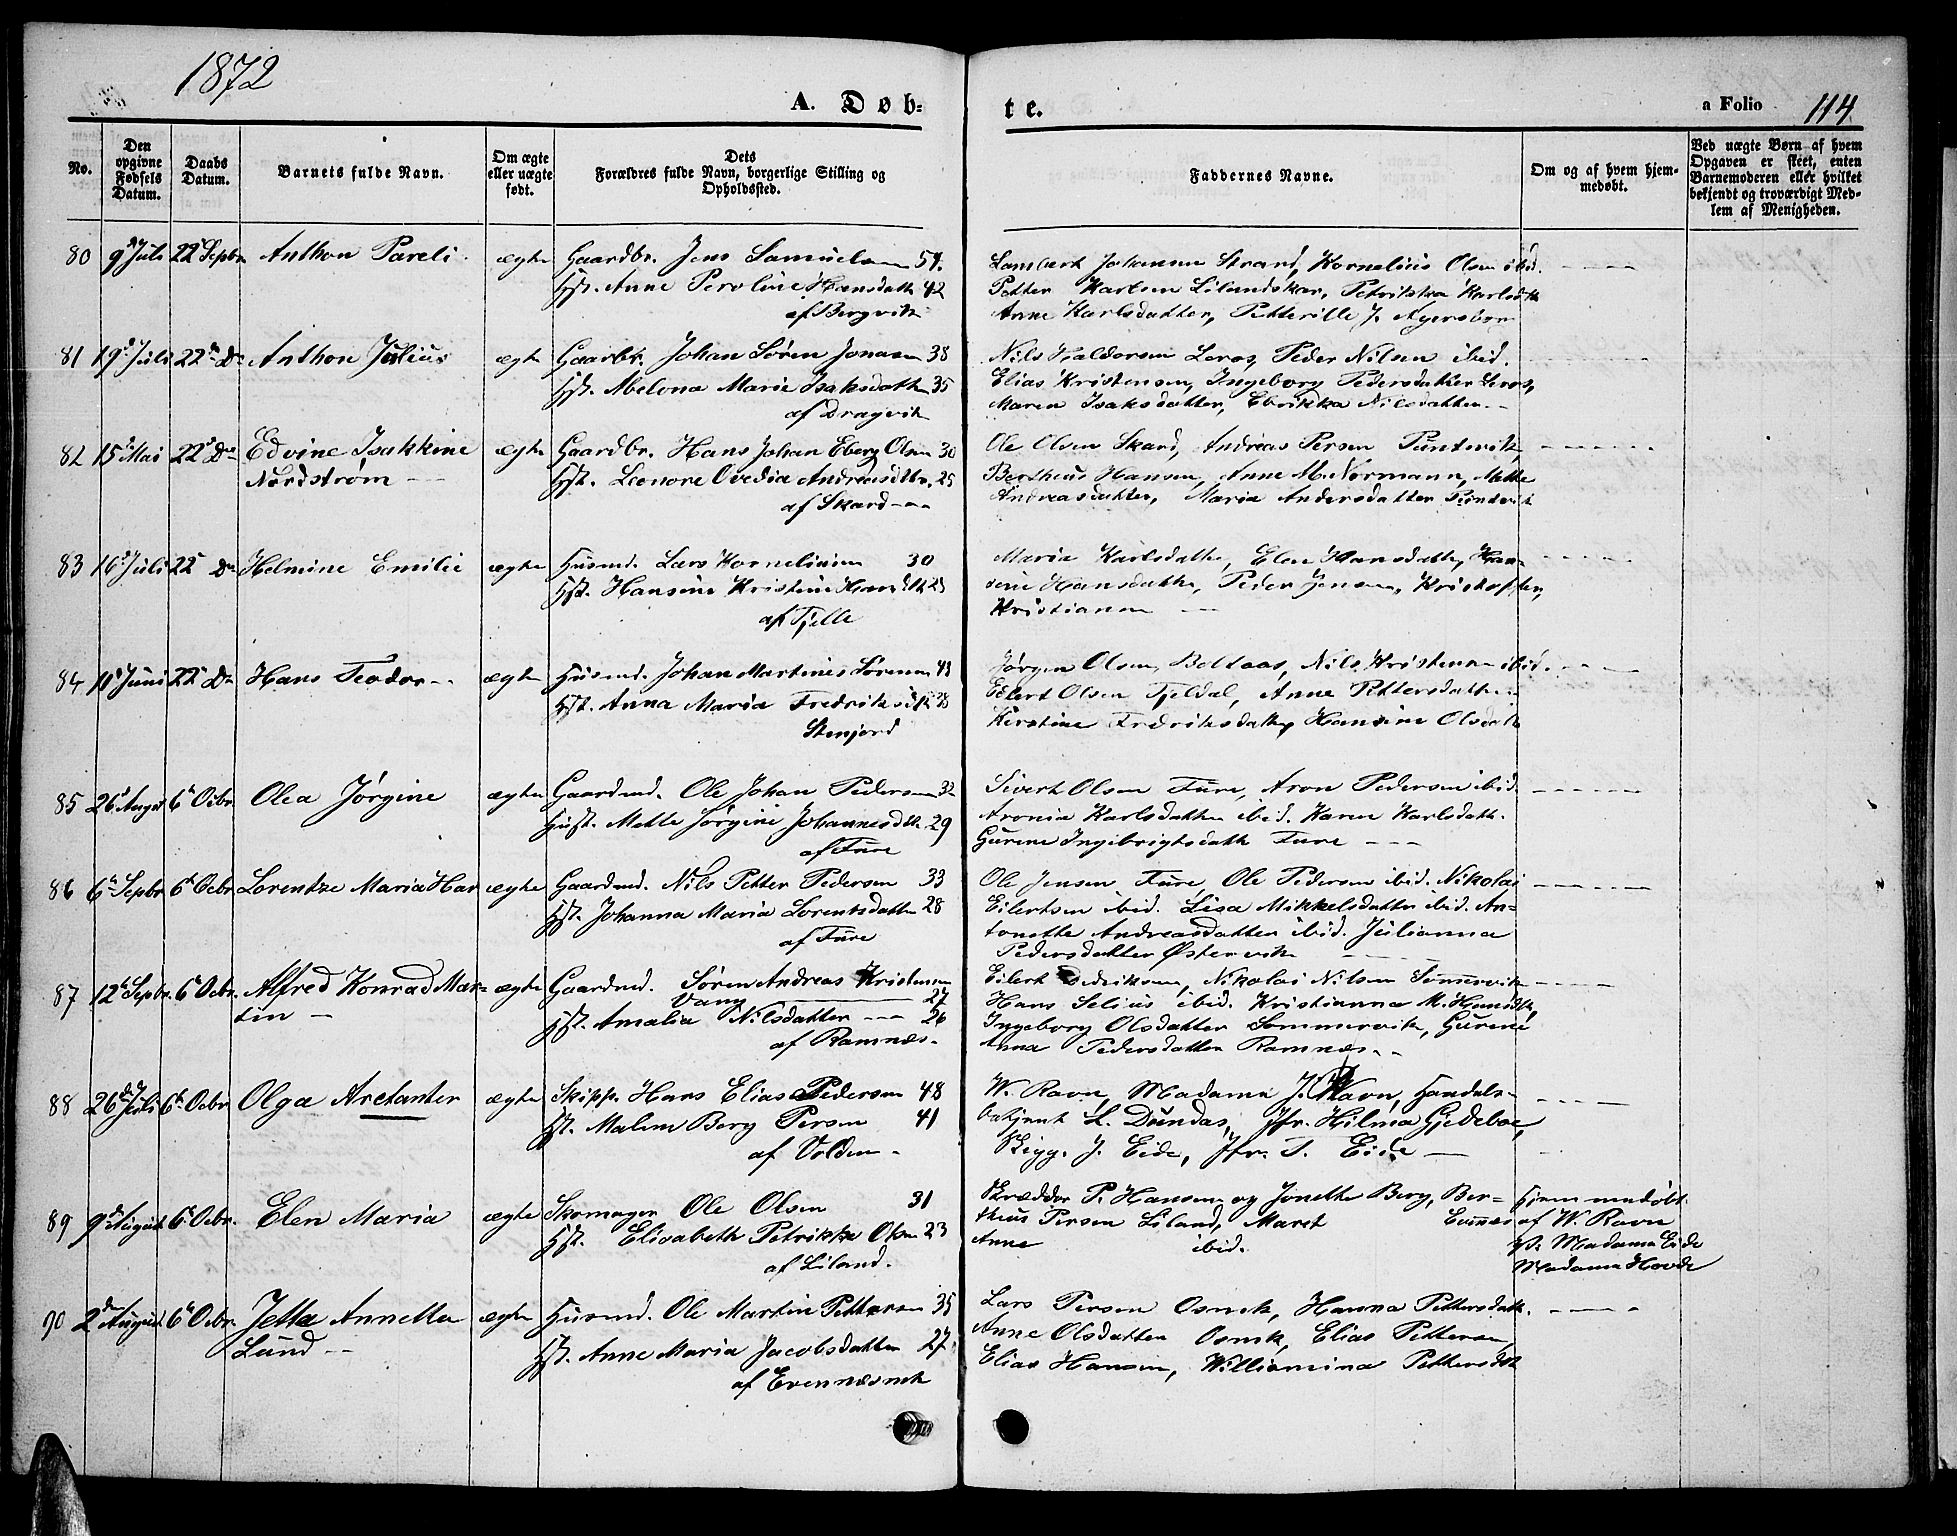 1872
A. Døb-
te.
a Folio 114.
No.
Den opgivne Fødsels Datum.
Daabs Datum.
Barnets fulde Navn.
Om ægte eller uægte født.
Dets Forældres fulde Navn, borgerlige Stilling og Opholdssted.
Faddernes Navne.
Om og af hvem hjemmedøbt.
Ved uægte Børn af hvem Opgaven er skeet, enten Barnemoderen eller hvilket bekjendt og troværdigt Medlem af Menigheden.
80 9d Juli 22d Sepbr. Anthon Pareli ægte Gaardbr. Jens Samuelsen 54.
Hst. Anne Peroline Hansdatt 42
af Bergvik
Lambert Johansen Strand, Kornelius Olsen ibid.
Petter Karlsen Lilandskar, Petrikka Karlsdtt
Anne Karlsdatter, Petterille J.
81 19d Juli 22d Do Anthon Julius ægte Gaardbr. Johan Søren Jonasen 38
Hst. Abelona Maria Isaksdatter 35
af Dragvik
Nils Haldorsen Leros, Peder Nilsen ibid.
Elias Kristensen, Ingeborg Pedersdatter Leros,
Maren Isaksdatter, Ebrikka Nilsdatter
82 15d Mai 22d Do Edvine Isakkine ægte Gaardbr. Hans Johan Eberg Olsen 30
Nordstrøm
Hst. Leonore Ovedia Andreasdtr. 25
af Skard
Ole Olsen Skard, Andreas Persen Tunstvik,
Bertheus Hansen, Anne M. Normann, Mette
Andreasdatter, Maria Andersdatter
83 16d Juli 22d Do Helmine Emilie ægte Husmd. Lars Korneliussen 30
Hst. Hansine Kristine Hansdtt 23
af Tjelle
Maria Karlsdatter, Elen Hansdatter, Han-
sine Hansdatter, Peder Jensen, Kristoffer,
Kristiansen
84 10d Juni 22d Do Hans Teodor ægte Husmd. Johan Martines Sørensen 43
Hst. Anna Maria Fredriksdtt 38
Stenjord
Jørgen Olsen Boltaas, Nils Kristensen ibid.
Edert Olsen Fjeldal, Anne Pettersdatter
Kirstine Fredriksdatter, Hansine Olsdatt
85 26d August 6d Ocbr. Olea Jørgine ægte Gaardmd. Ole Johan Pedersen 32
Hust. Mette Jørgine Johannesdtt 29
af Fure
Sivert Olsen Fure, Aron Pedersen ibid.
Aronia Karlsdatter ibid. Karen Karlsdatt.
Gurine Ingebrigtsdatt Fure
86 6d Sepbr. 6d Ocbr. Lorentze Maria Har ægte Gaardmd. Nils Petter Pedersen 33
Hst. Johanna Maria Lorentsdatter 28
af Fure
Ole Jensen Fure, Ole Pedersen ibid. Nikolai
Eilertsen ibid. Lisa Mikkelsdatter ibid. An-
tonette Andreasdatter ibid. Julianna
Pedersdatter Østervik
87 12d Sepbr. 6d Ocbr. Alfred Konrad Mar- ægte Gaardmd. Søren Andreas Kristensen
tin
Vang 27
Hst. Amalia Nilsdatter 26
af Ramnæs
Eilert Didriksen, Nikolai Nilsen Sommervik
Hans Selius ibid. Kristianna M. Hansdtt,
Ingeborg Olsdatter Sommervik, Gurine
Anna Pedersdatter Ramnæs
88 26d Juli 6d Ocbr. Olga Aretanter ægte Skipp. Hans Elias Pedersen 48
Hst. Malene Berg Persen 41
af Volden
W. Ravn, Madama J. Ravn, Handels-
betjent L. Dundas, Jfr. Hilma Gjedeboe,
Skipp. J. Eide, Jfr. T. Eide
89 9d August 6d Ocbr. Elen Maria ægte Skomager Ole Olsen 31
Hst. Elisabeth Petrikka Olsen 23
af Liland.
Skrædder P. Hansen og Jonette Berg, Ber-
theus Persen Liland, Maret Evenæs
Anne ibid.
Hjemmedøbt
af W. Ravn
P. Madama Eide
Madama Hovde
90 2d August 6d Ocbr. Jetta Annetta ægte Husmd. Ole Martin Pettersen 35
Lund
Hst. Anne Maria Jacobsdatter 27
af Evenæsmk
Lars Persen Osmk, Hanna Pettersdatt.
Anne Olsdatter Osmk, Elias Pettersen,
Elias Hansen, Williamina Pettersdtt